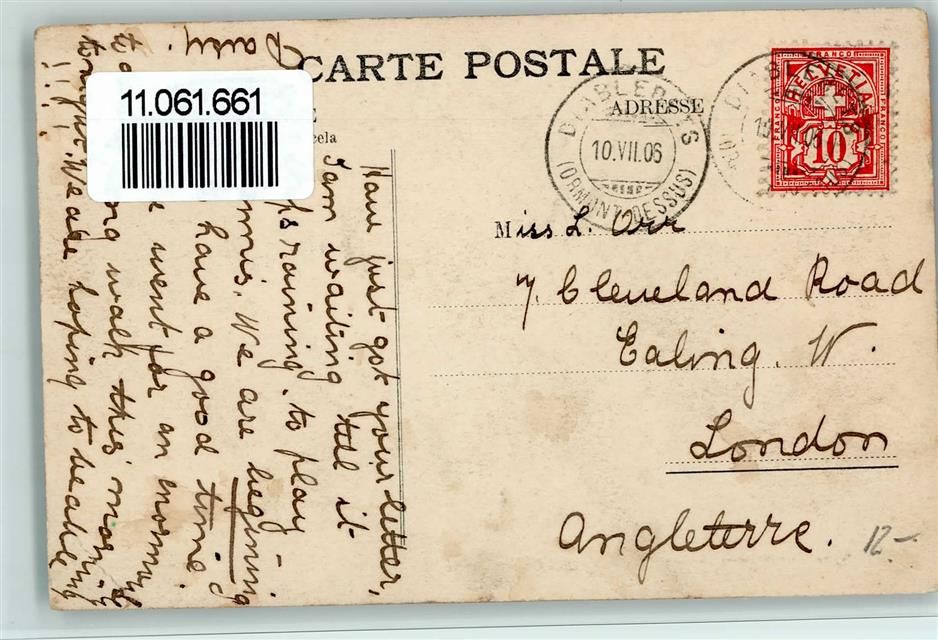 CARTE POSTALE
ADRESSE
11.061.661
cela
DIABLERETS
10.VII.06
(ORMONT DESSUS)
FRANCO
HELVETIA
10
Miss L. Orr
7. Cleveland Road
Ealing. W.
London
Angleterre.
12-
Have just got your letter,
I am waiting till it
raining, to play
We are beginning
have a good time
went for an
walk this
tonight. We are hoping to